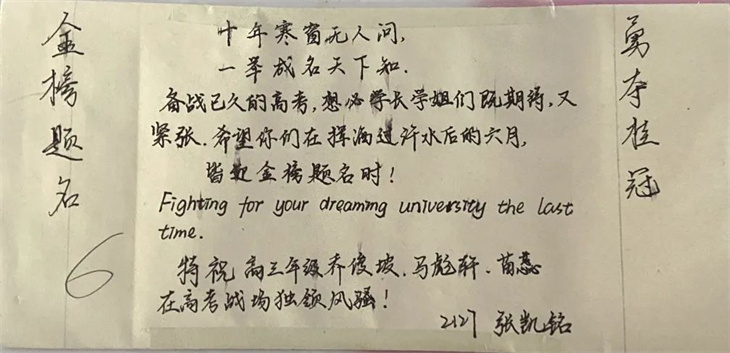 金榜题名
十年寒窗无人问,
一举成名天下知.
备战已久的高考,想必学长学姐们既期待,又
紧张.希望你们在挥洒过汗水后的六月,
皆是金榜题名时!
Fighting for your dreaming university the last
time.
特祝高三年级乔俊坡、马彪轩、苗蕊
在高考战场独领风骚!
2127 张凯铭
勇夺桂冠
6